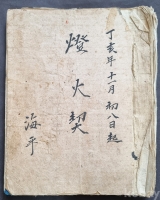 丁亥年十一月初八日起
燈火契
海平